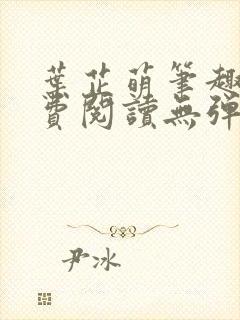 葉芷萌筆趣
費閱讀無彈
尹冰